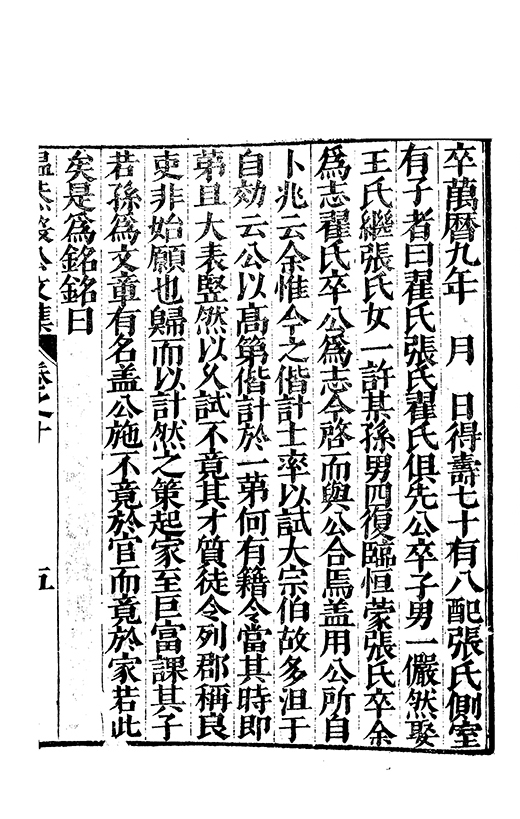 卒萬曆九年　月　日得壽七十有八配張氏側室
有子者曰翟氏張氏翟氏俱先公卒子男一儼然娶
王氏繼張氏女一許某孫男四復臨恒蒙張氏卒余
爲志翟氏卒公爲志今啓而與公合焉盖用公所自
卜兆云余惟今之偕計士率以試大宗伯故多沮于
自効云公以高第偕計於一第何有籍令當其時即
第且大表竪然以久試不竟其才質徒令列郡稱良
吏非始願也歸而以計然之策起家至巨富課其子
若孫爲文章有名盖公施不竟於官而竟於家若此
矣是爲銘銘曰
温恭毅公文集　卷之十　五